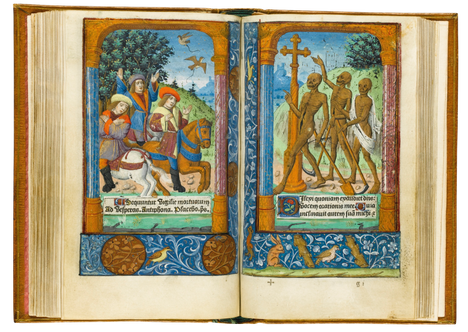 Sequuntur Vigilie mortuorum
Ad Vesperas. Antiphona. Placebo. ps.
Dilexi quoniam exaudiet dns:
vocem orationis mee. Quia
inclinauit aurem suā michi:
g i